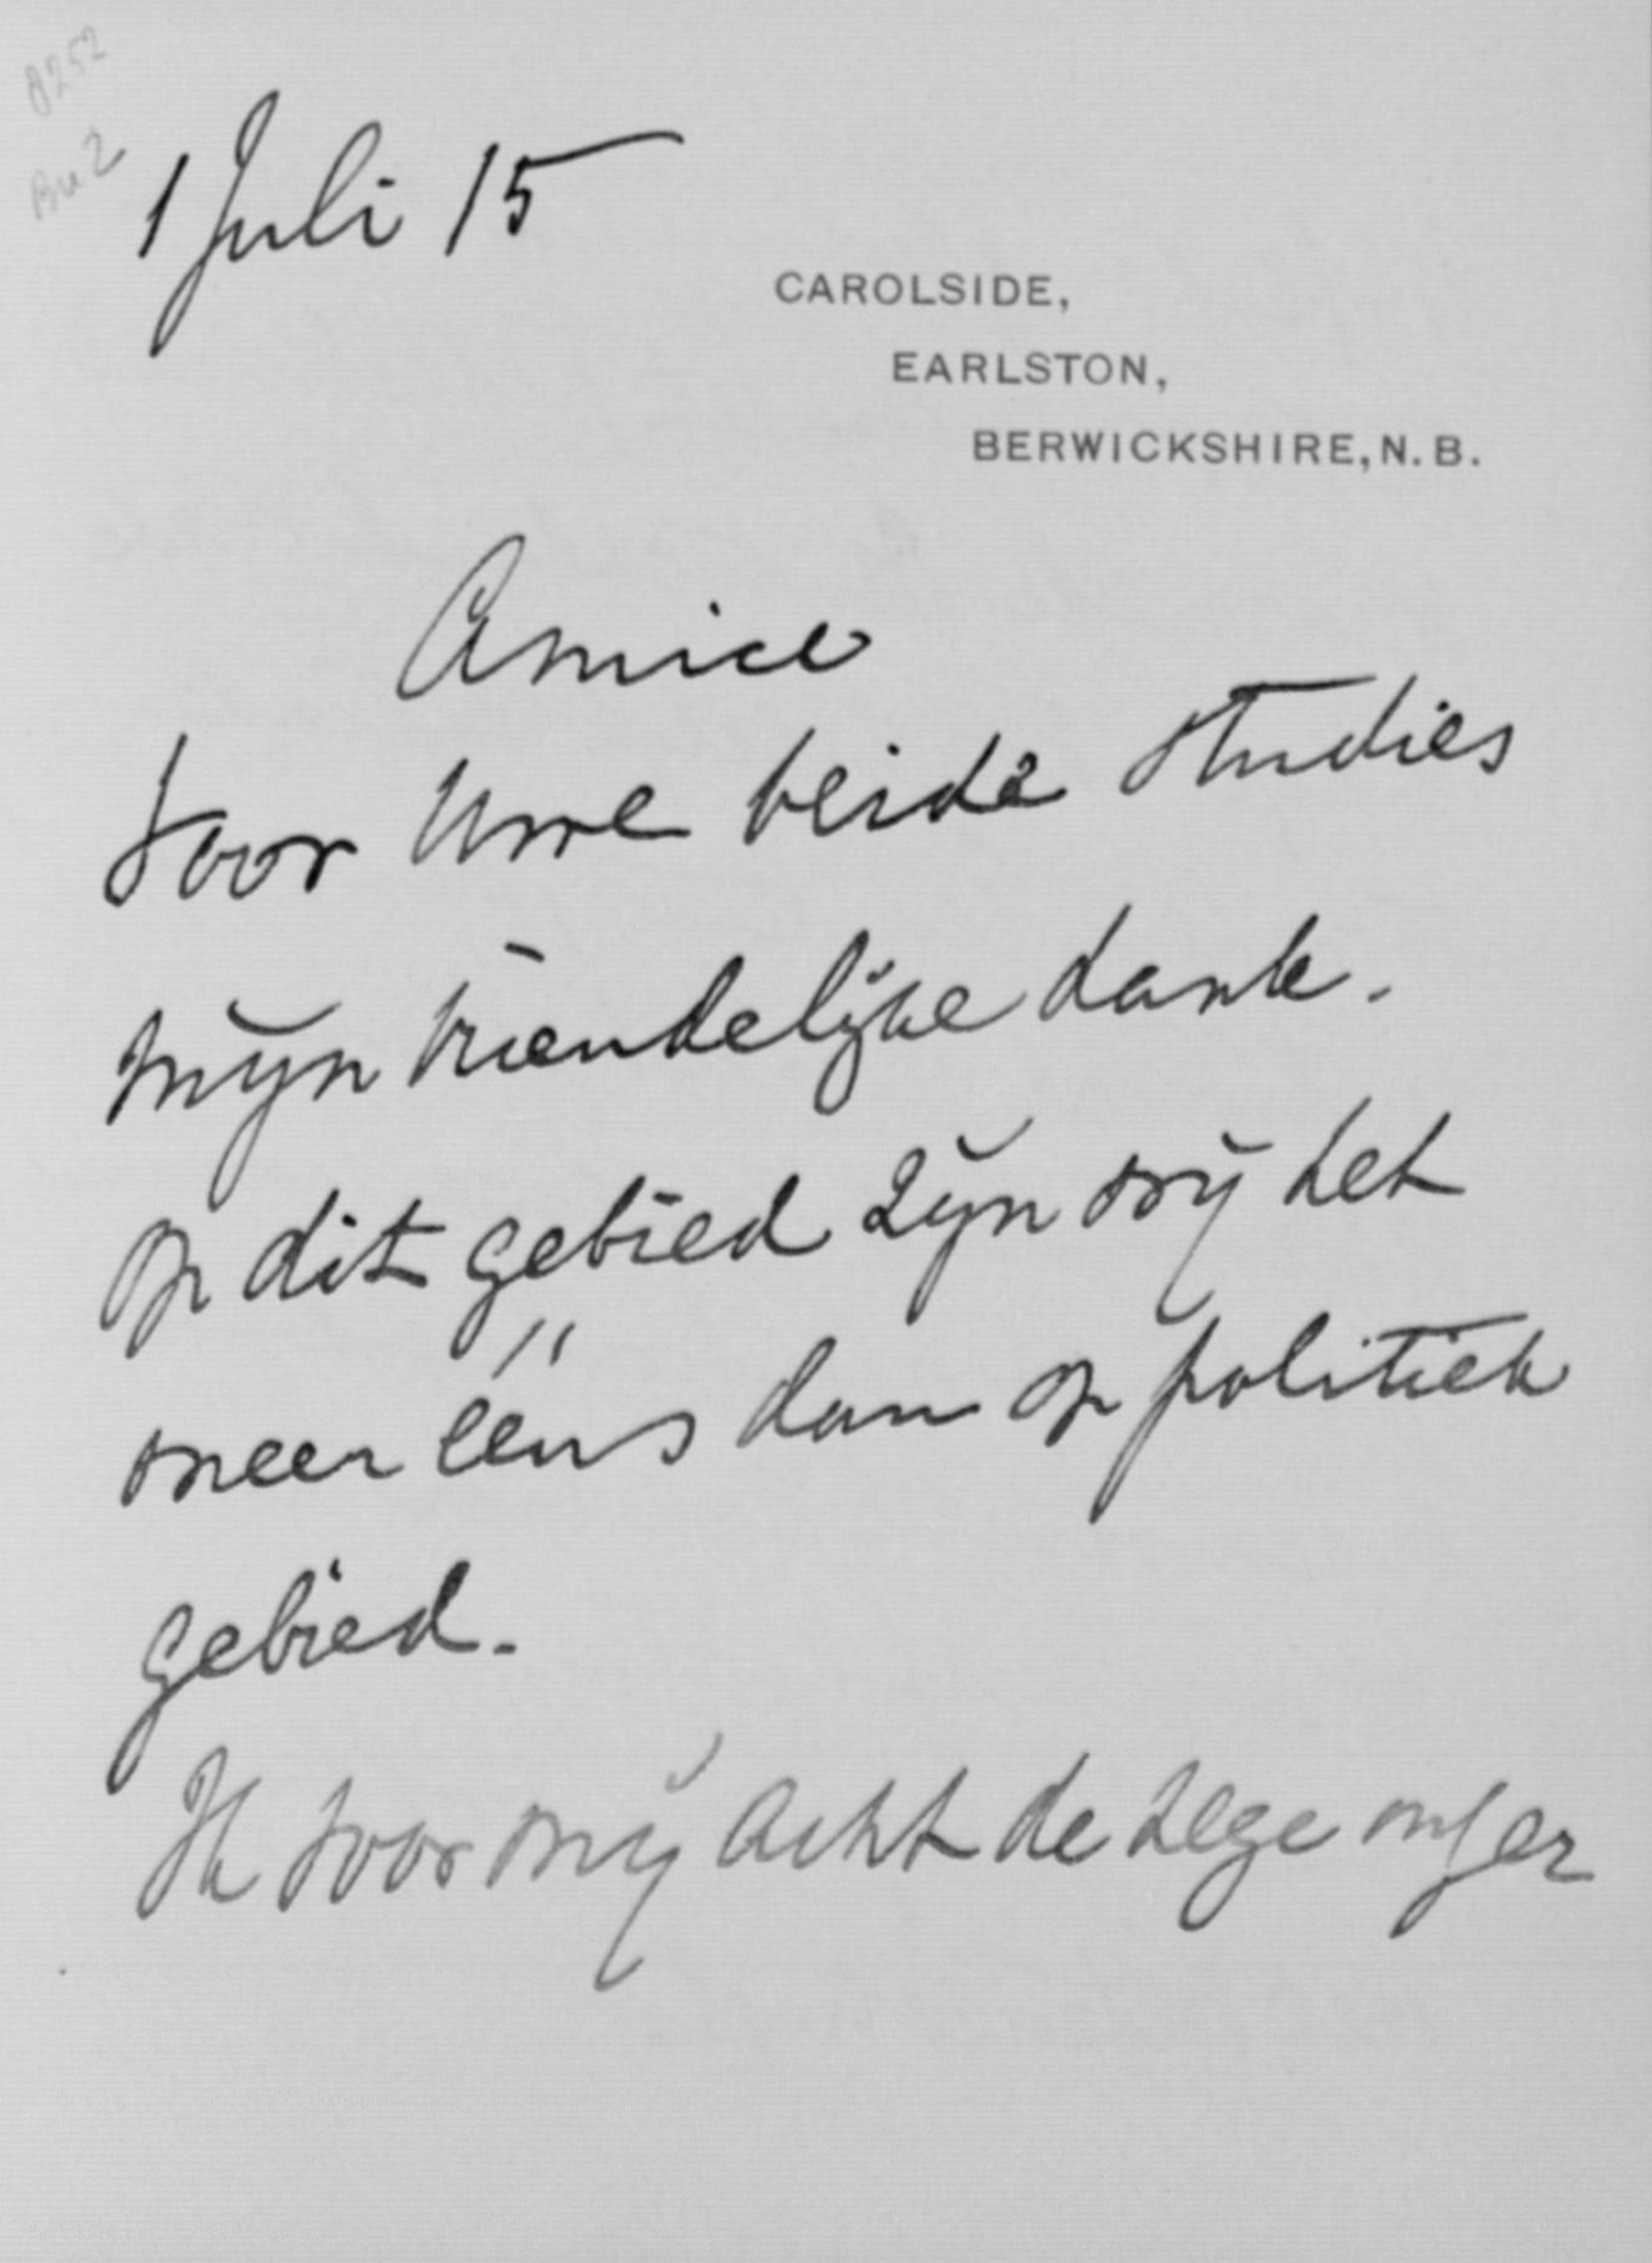 8252
Bu 2
1 Juli 15
CAROLSIDE,
EARLSTON,
BERWICKSHIRE, N. B.
Amice
Voor Uwe beide studies
mijn vriendelijke dank.
Op dit gebied zijn wij het
meer ééns dan op politiek
gebied.
Ik voor mij acht de zege